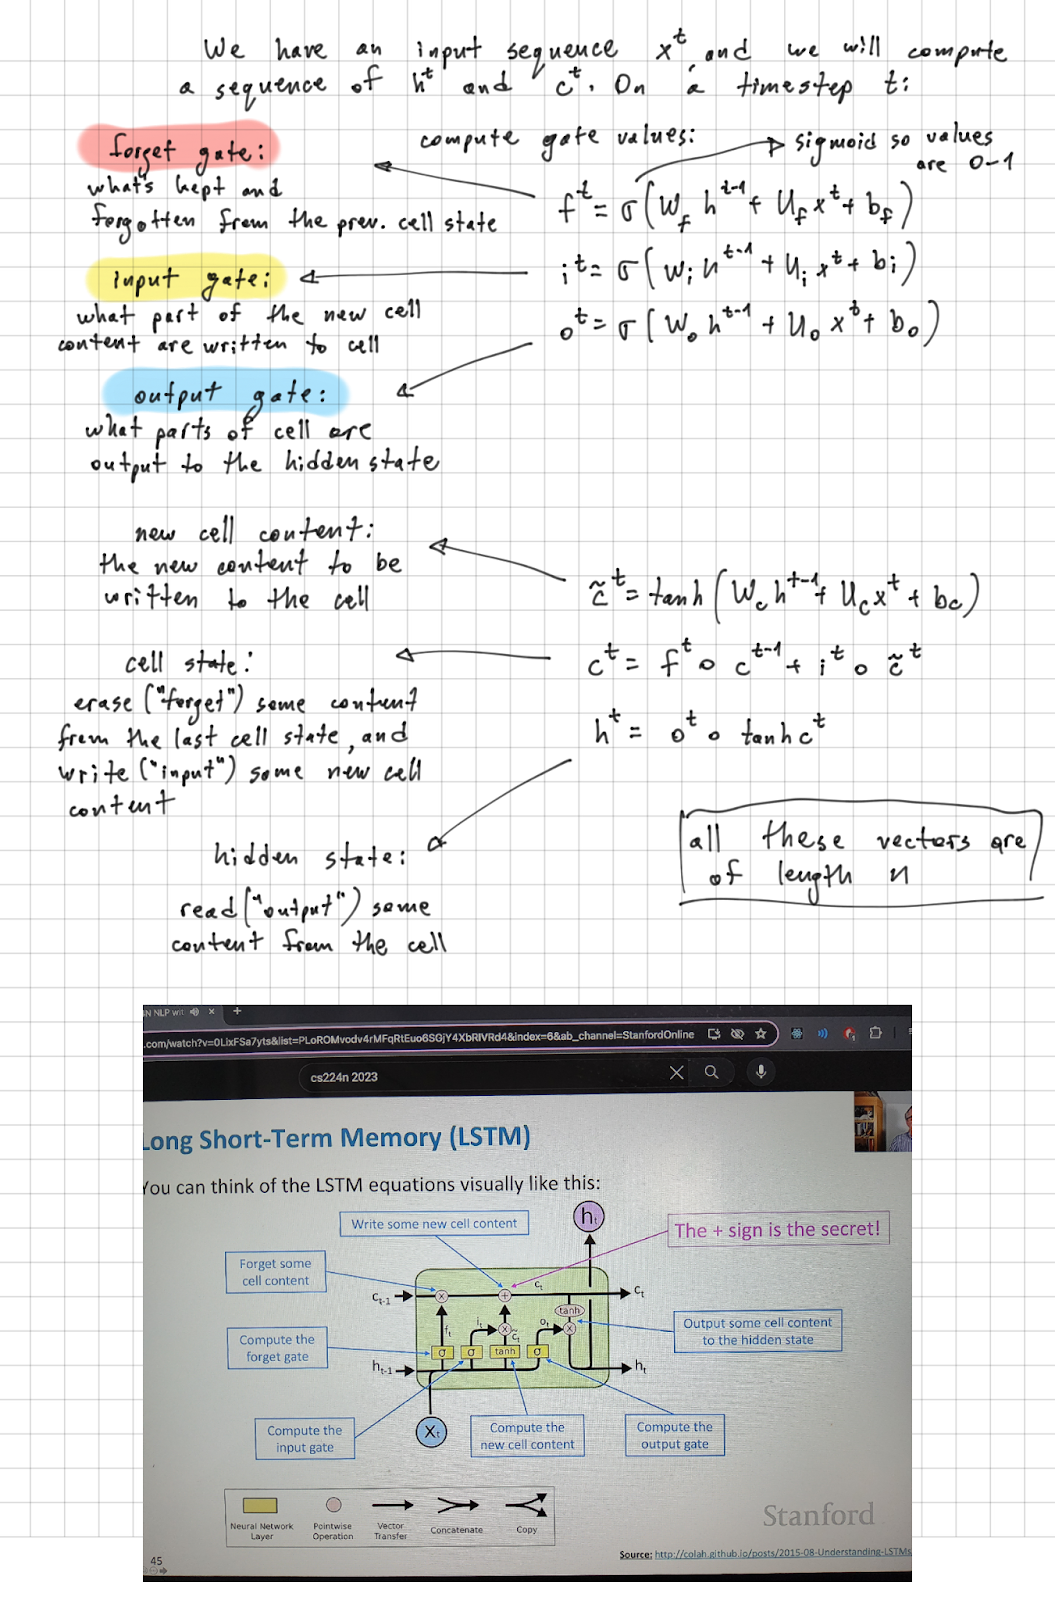 We have an input sequence x^t, and we will compute
a sequence of h^t and c^t. On a timestep t:
forget gate:
what's kept and
forgotten from the prev. cell state
compute gate values:
sigmoid so values
are 0-1
f^t = σ(W_f h^{t-1} + U_f x^t + b_f)
input gate:
what part of the new cell
content are written to cell
i^t = σ(W_i h^{t-1} + U_i x^t + b_i)
o^t = σ(W_o h^{t-1} + U_o x^t + b_o)
output gate:
what parts of cell are
output to the hidden state
new cell content:
the new content to be
written to the cell
c̃^t = tanh(W_c h^{t-1} + U_c x^t + b_c)
cell state:
erase ("forget") some content
from the last cell state, and
write ("input") some new cell
content
c^t = f^t ∘ c^{t-1} + i^t ∘ c̃^t
h^t = o^t ∘ tanh c^t
hidden state:
read ("output") some
content from the cell
all these vectors are
of length n
N NLP wit
.com/watch?v=0LixFSa7yts&list=PLoROMvodv4rMFqRtEuo6SGjY4XbRIVRd4&index=6&ab_channel=StanfordOnline
cs224n 2023
Long Short-Term Memory (LSTM)
You can think of the LSTM equations visually like this:
Write some new cell content
h_t
The + sign is the secret!
Forget some
cell content
c_{t-1}
c_t
c_t
tanh
Output some cell content
to the hidden state
Compute the
forget gate
f_t
i_t
c̃_t
o_t
σ
σ
tanh
σ
h_{t-1}
h_t
Compute the
input gate
X_t
Compute the
new cell content
Compute the
output gate
Neural Network
Layer
Pointwise
Operation
Vector
Transfer
Concatenate
Copy
Stanford
Source: http://colah.github.io/posts/2015-08-Understanding-LSTMs
45